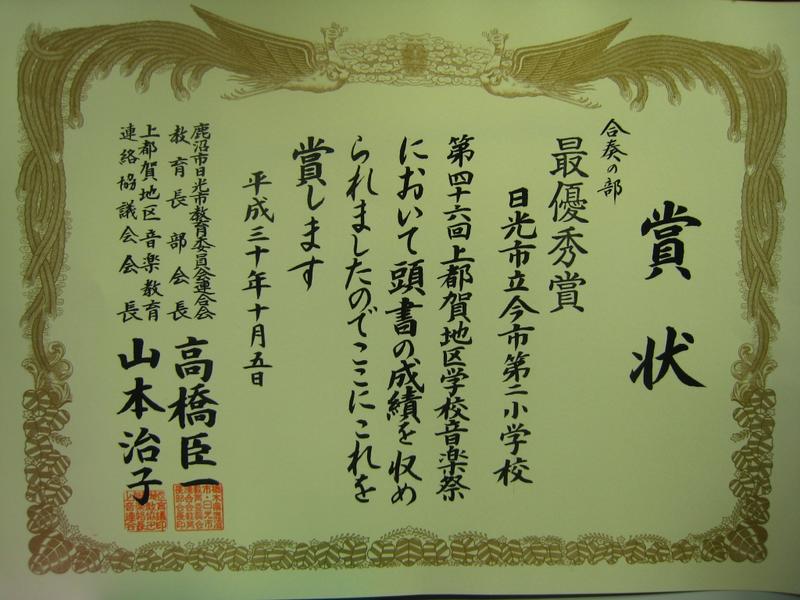 賞状
合奏の部
最優秀賞
日光市立今市第二小学校
第四十六回上都賀地区学校音楽祭
において頭書の成績を収め
られましたのでここにこれを
賞します
平成三十年十月五日
鹿沼市日光市教育委員会連合会
教育長部会長
高橋臣一
上都賀地区音楽教育
連絡協議会会長
山本治子